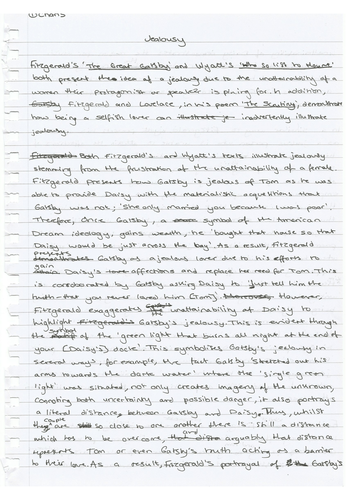 Jealousy
Fitzgerald's 'The Great Gatsby' and Wyatt's 'Who so list to Hount'
both present the idea of a jealousy due to the unattainability of a
women their protagonist or speaker is pining for. In addition,
Gatsby Fitzgerald and Lovelace, in his poem 'The Scrutiny', demonstrate
how being a selfish lover can illustrate je inadvertently illustrate
jealousy.
Fitzgerald Both Fitzgerald's and Wyatt's texts illustrate jealousy
stemming from the frustration of the unattainability of a female.
Fitzgerald presents how Gatsby is jealous of Tom as he was
able to provide Daisy with the materialistic acquisitions that
Gatsby was not; 'She only married you because I was poor'.
Therefore, Once Gatsby, a symbol of the American
Dream ideology, gains wealth, he 'bought that house so that
Daisy would be just across the bay'. As a result, Fitzgerald
presents
demonstrates Gatsby as a jealous lover due to his efforts to
gain
Daisy's affections and replace her need for Tom. This
is corroborated by Gatsby asking Daisy to 'Just tell him the
truth - that you never loved him [Tom]'. However,
Fitzgerald exaggerates unattainability of Daisy to
highlight Fitzgerald's Gatsby's jealousy. This is evident though
the of the 'green light that burns all night at the end of
your [Daisy's] dock'. This symbolises Gatsby's jealousy in
several ways, for example, the fact Gatsby 'stretched out his
arms towards the dark water' where the 'single green
light' was situated, not only creates imagery of the unknown,
connoting both uncertainty and possible danger, it also portrays
a literal distance between Gatsby and Daisy. Thus, whilst
couple
they are so close to one another there is still a distance
which has to be overcome, and arguably that distance
represents Tom or even Gatsby's truth acting as a barrier
to their love. As a result, Fitzgerald's portrayal of Gatsby's